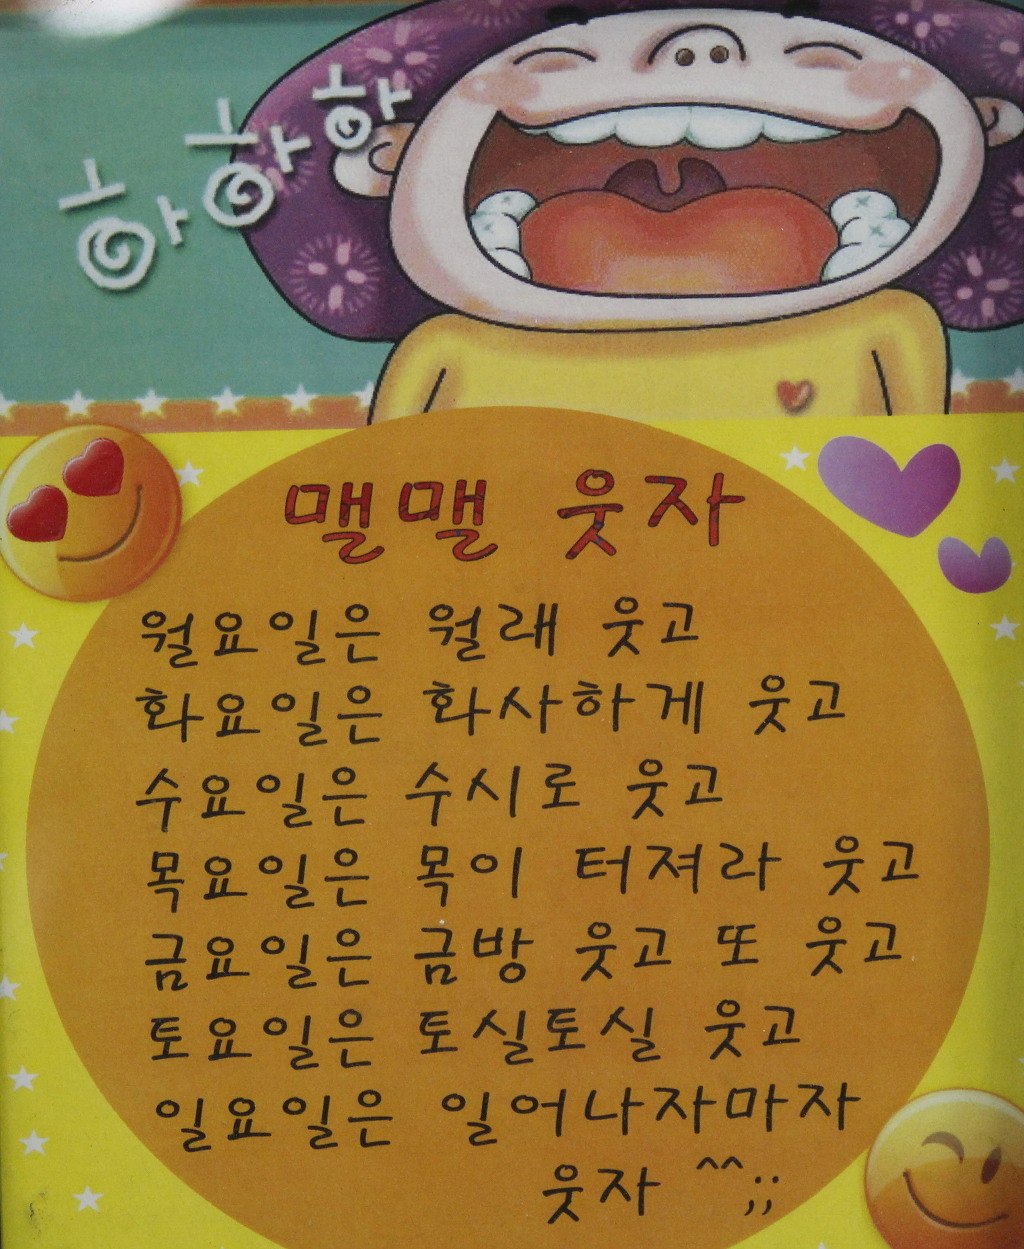 하하하
맬맬 웃자
월요일은 월래 웃고
화요일은 화사하게 웃고
수요일은 수시로 웃고
목요일은 목이 터져라 웃고
금요일은 금방 웃고 또 웃고
토요일은 토실토실 웃고
일요일은 일어나자마자
웃자 ^^;;